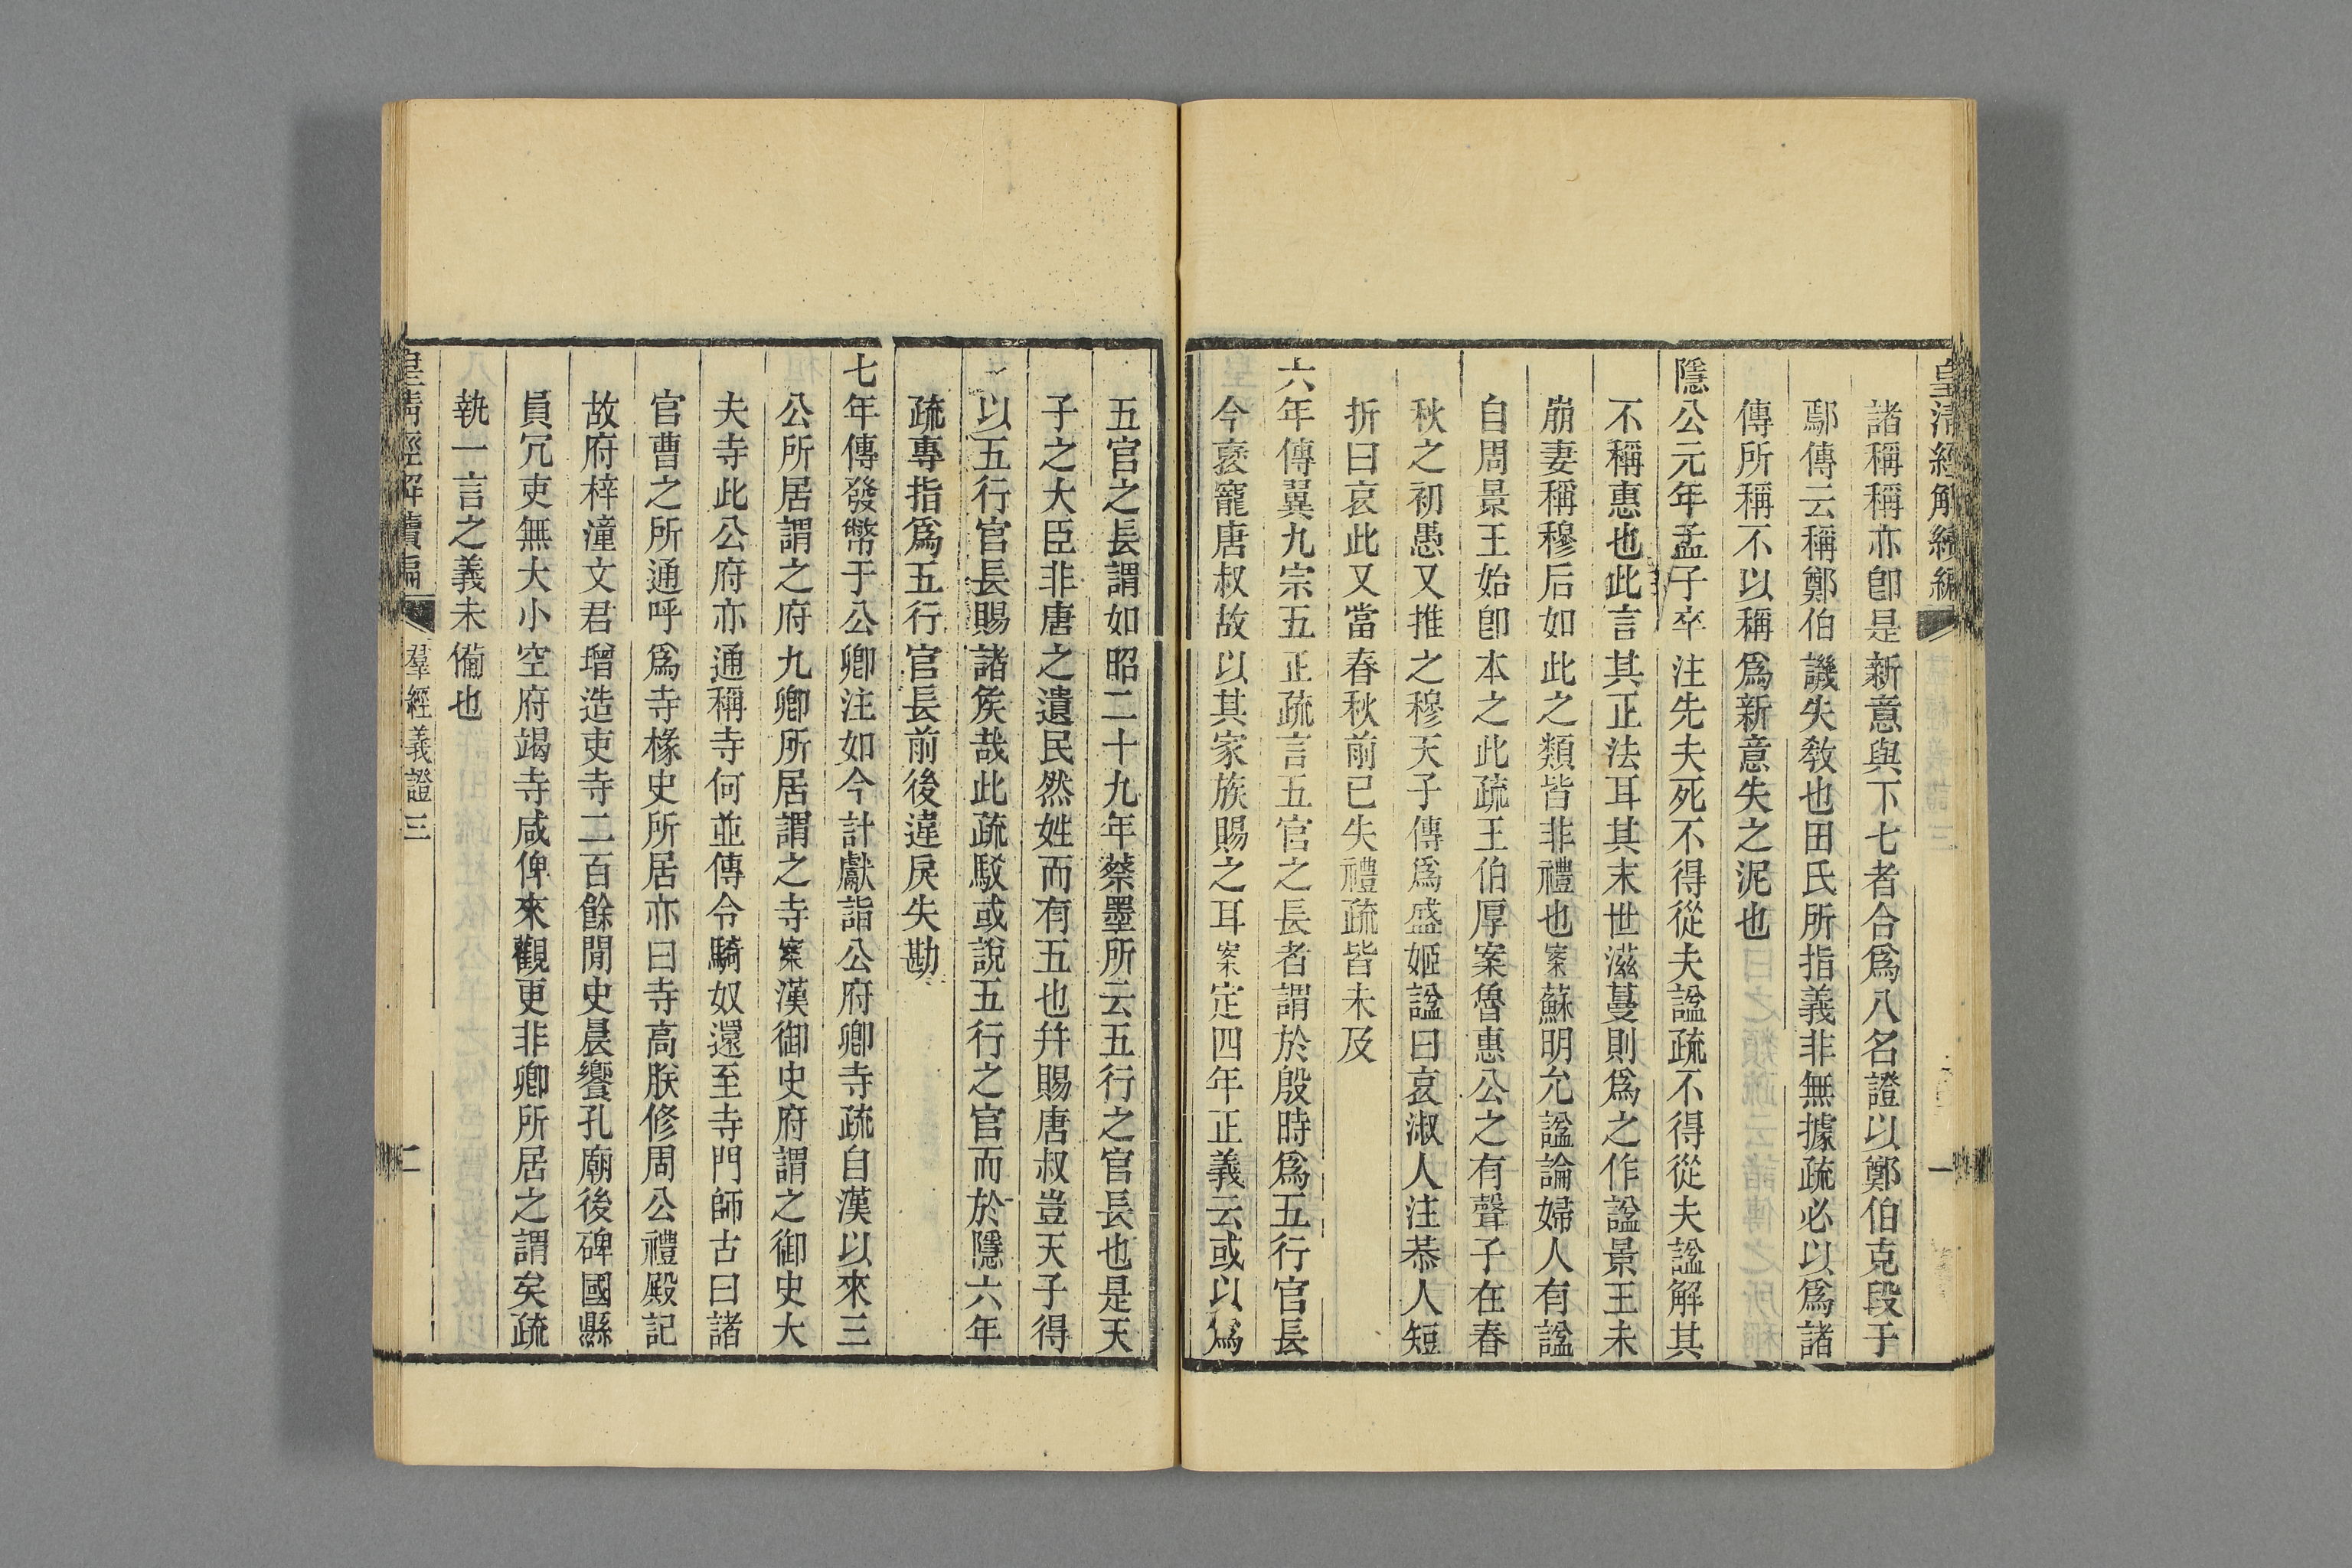 皇清經解續編
一
諸稱稱亦卽是新意與下七者合爲八名證以鄭伯克段于
鄢傳云稱鄭伯譏失敎也田氏所指義非無據疏必以爲諸
傳所稱不以稱爲新意失之泥也
隱公元年孟子卒注先夫死不得從夫諡疏不得從夫諡解其
不稱惠也此言其正法耳其末世滋蔓則爲之作諡景王未
崩妻稱穆后如此之類皆非禮也案蘇明允諡論婦人有諡
自周景王始卽本之此疏王伯厚案魯惠公之有聲子在春
秋之初愚又推之穆天子傳爲盛姬諡曰哀淑人注恭人短
折曰哀此又當春秋前已失禮疏皆未及
六年傳翼九宗五正疏言五官之長者謂於殷時爲五行官長
今襃寵唐叔故以其家族賜之耳案定四年正義云或以爲
五官之長謂如昭二十九年蔡墨所云五行之官長也是天
子之大臣非唐之遺民然姓而有五也幷賜唐叔豈天子得
以五行官長賜諸矦哉此疏駁或說五行之官而於隱六年
疏專指爲五行官長前後違戾失勘
七年傳發幣于公卿注如今計獻詣公府卿寺疏自漢以來三
公所居謂之府九卿所居謂之寺案漢御史府謂之御史大
夫寺此公府亦通稱寺何並傳令騎奴還至寺門師古曰諸
官曹之所通呼爲寺椽史所居亦曰寺高朕修周公禮殿記
故府梓潼文君增造吏寺二百餘閒史晨饗孔廟後碑國縣
員冗吏無大小空府竭寺咸俾來觀更非卿所居之謂矣疏
執一言之義未備也
皇清經解續編
羣經義證三
二